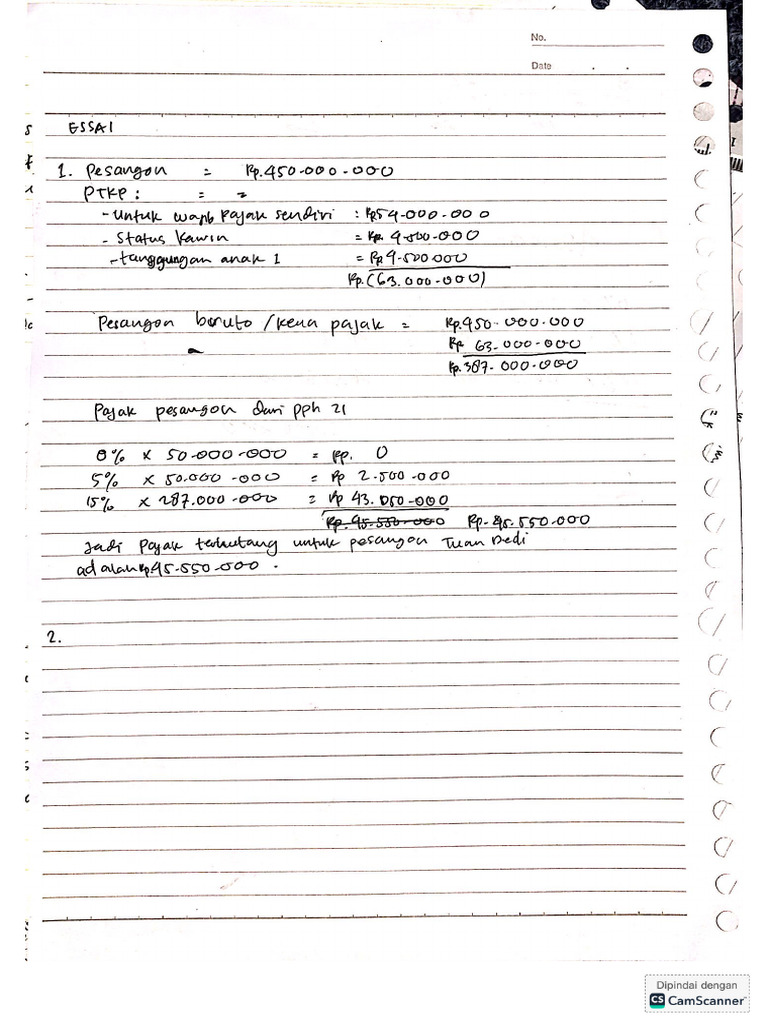 No.
Date . .
ESSAI
1. Pesangon = Rp.450.000.000
PTKP : = =
- Untuk wajib pajak sendiri : Rp54.000.000
- Status kawin = Rp. 4.500.000
- tanggungan anak 1 = Rp4.500.000
Rp.(63.000.000)
Pesangon boruto / kena pajak = Rp.450.000.000
Rp 63.000.000
Rp.387.000.000
Pajak pesangon dari pph 21
0% x 50.000.000 = Rp. 0
5% x 50.000.000 = Rp 2.500.000
15% x 287.000.000 = Rp 43.050.000
Rp. 45.550.000 Rp. 45.550.000
Jadi Pajak terhutang untuk pesangon Tuan Dedi
adalah Rp45.550.000.
2.
Dipindai dengan
CS CamScanner